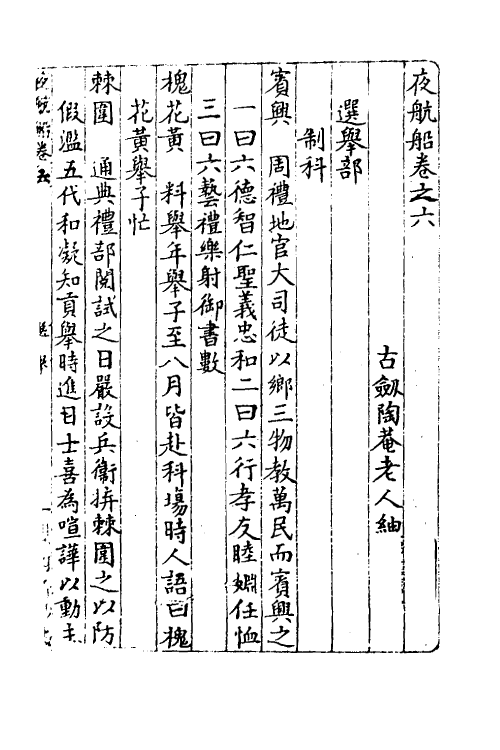 夜航船卷之六
古劔陶菴老人紬
選舉部
制科
賓興　周禮地官大司徒以鄉三物教萬民而賓興之
一曰六德智仁聖義忠和二曰六行孝友睦婣任恤
三曰六藝禮樂射御書數
槐花黃　料舉年舉子至八月皆赴科場時人語曰槐
花黃舉子忙
棘圍　通典禮部閱試之日嚴設兵衛拚棘圍之以防
假濫五代和凝知貢舉時進士喜為喧譁以動主
夜航船卷